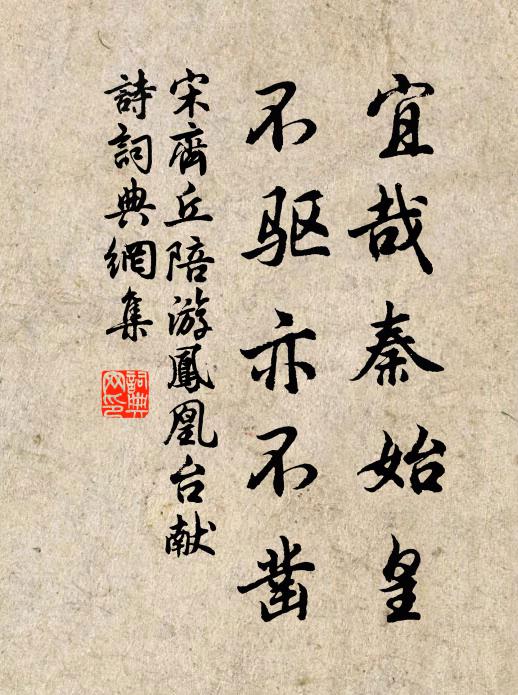 宜哉秦始皇
不驱亦不凿
宋齊丘陪游鳳凰台献
詩詞典網集
詞典
网印